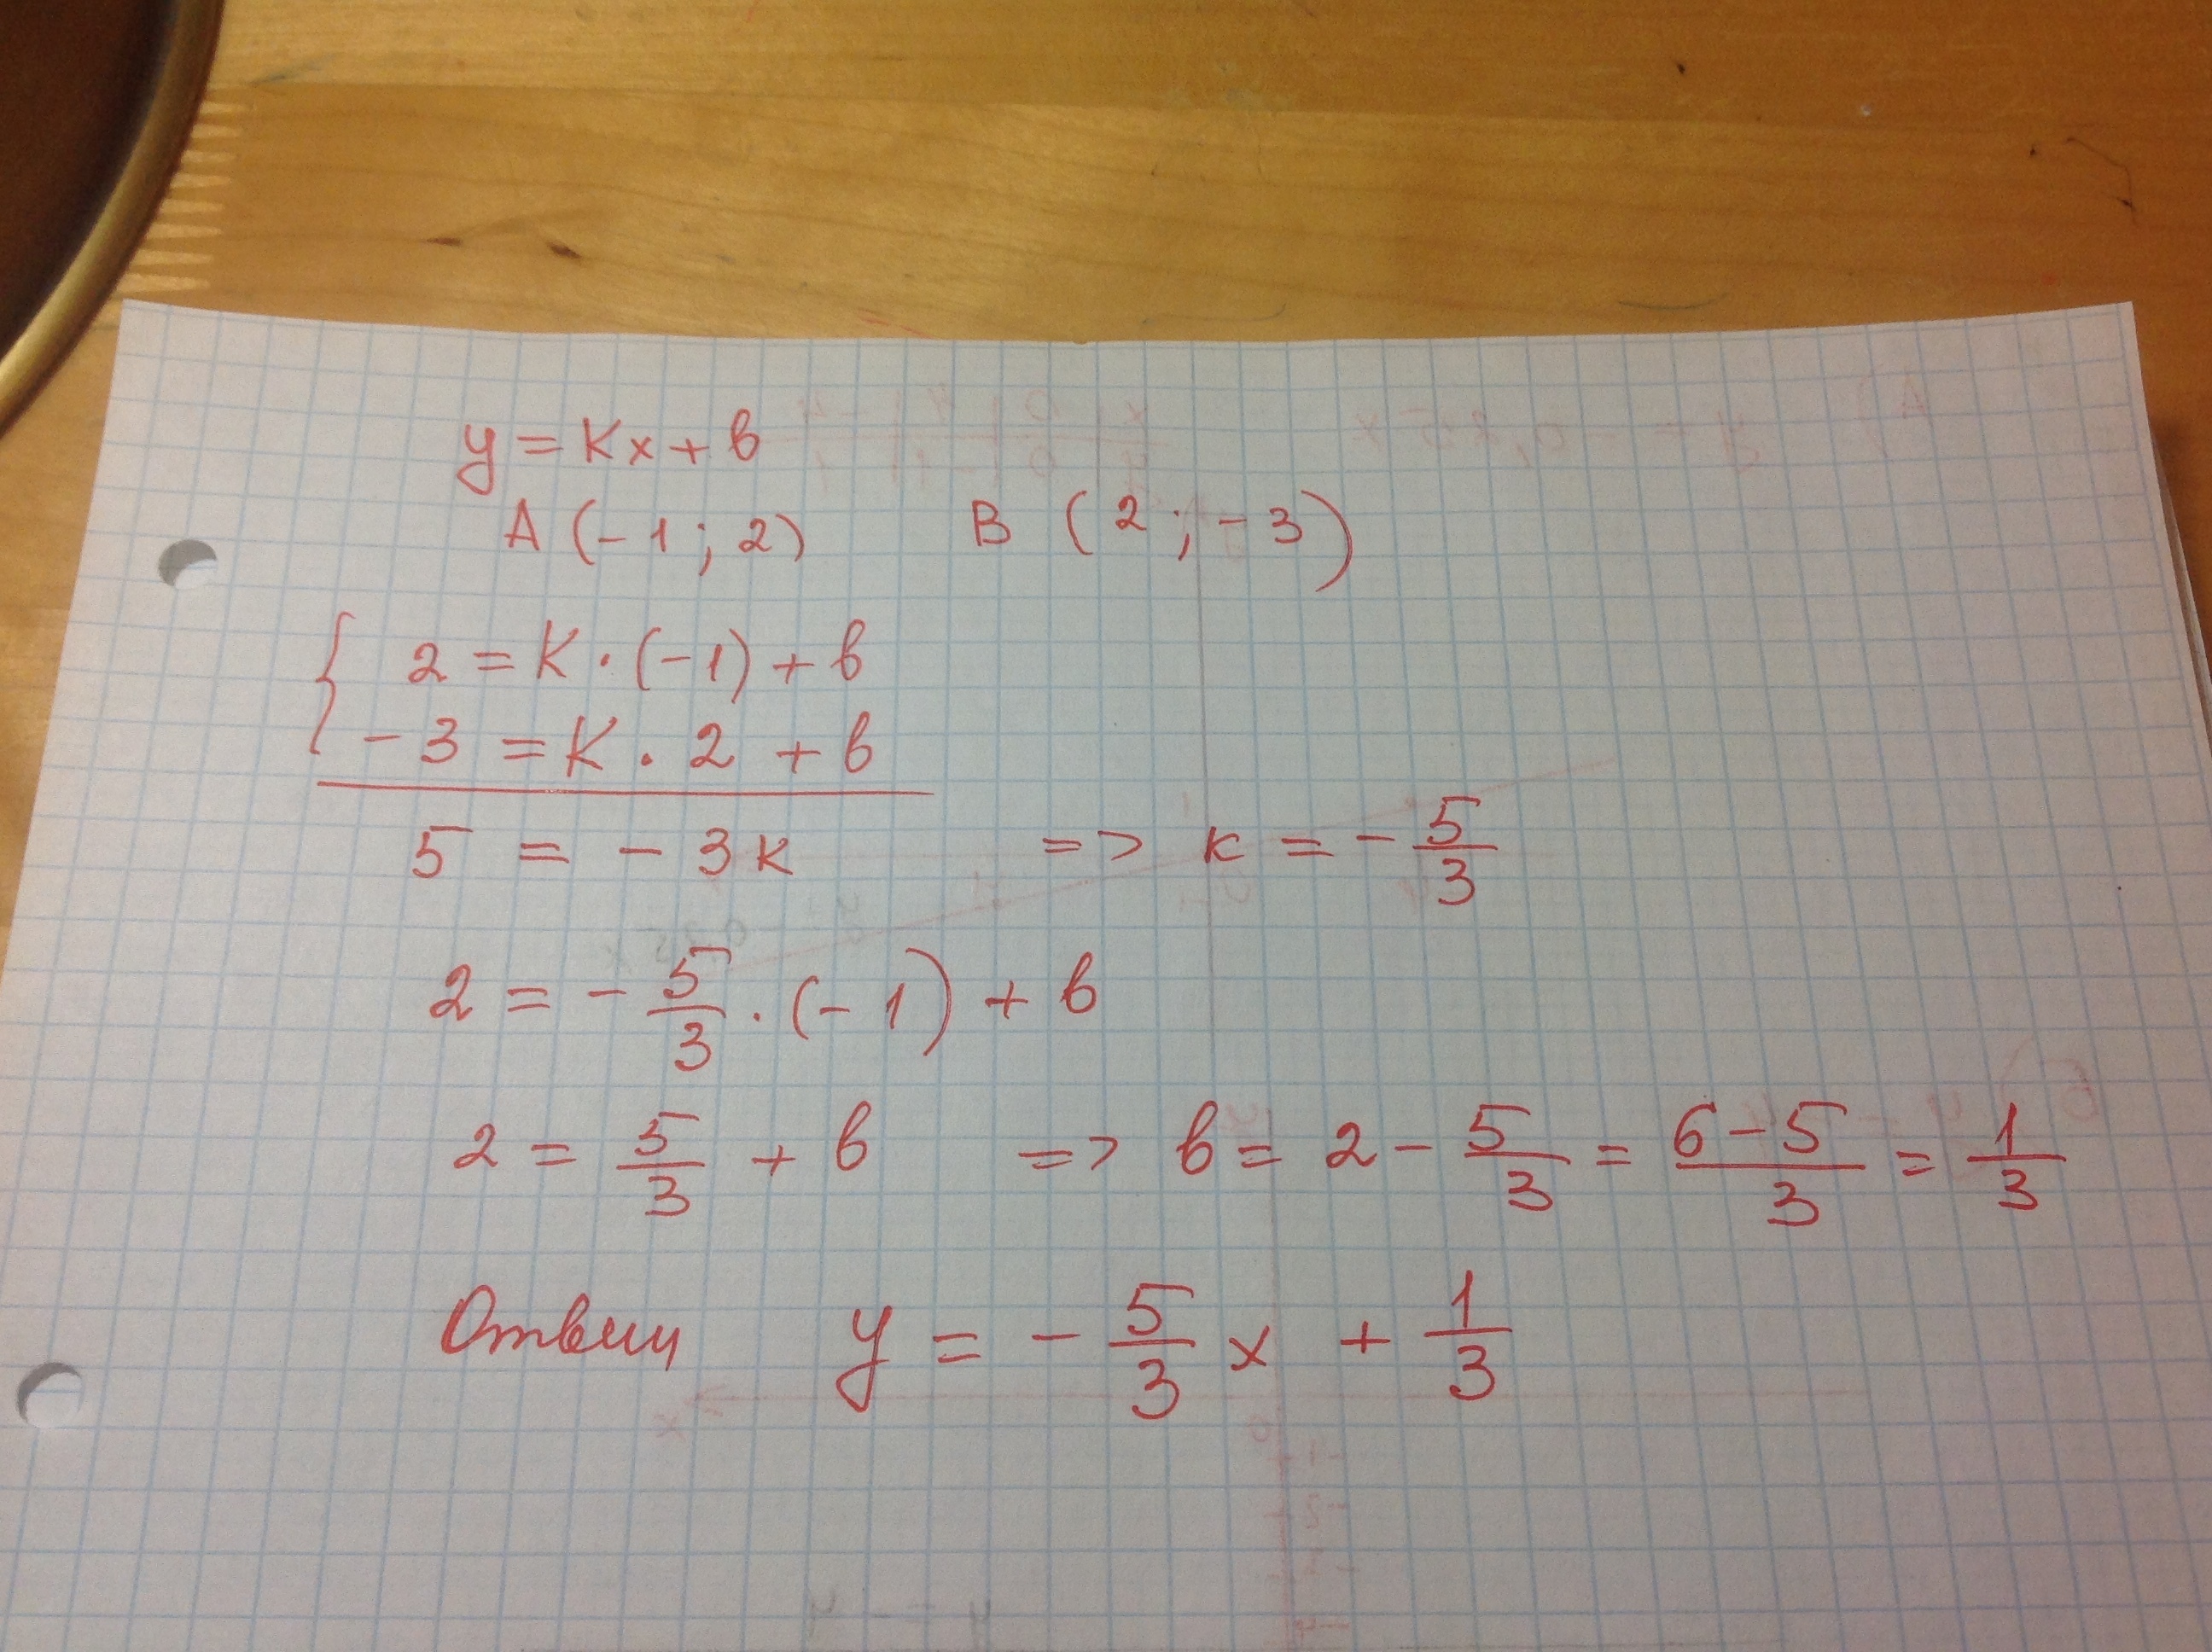 y = Kx + в
A (-1; 2) B (2; -3)
{ 2 = K · (-1) + в
-3 = K · 2 + в
5 = -3к => к = -5/3
2 = -5/3 · (-1) + в
2 = 5/3 + в => в = 2 - 5/3 = (6-5)/3 = 1/3
Ответ y = -5/3 x + 1/3